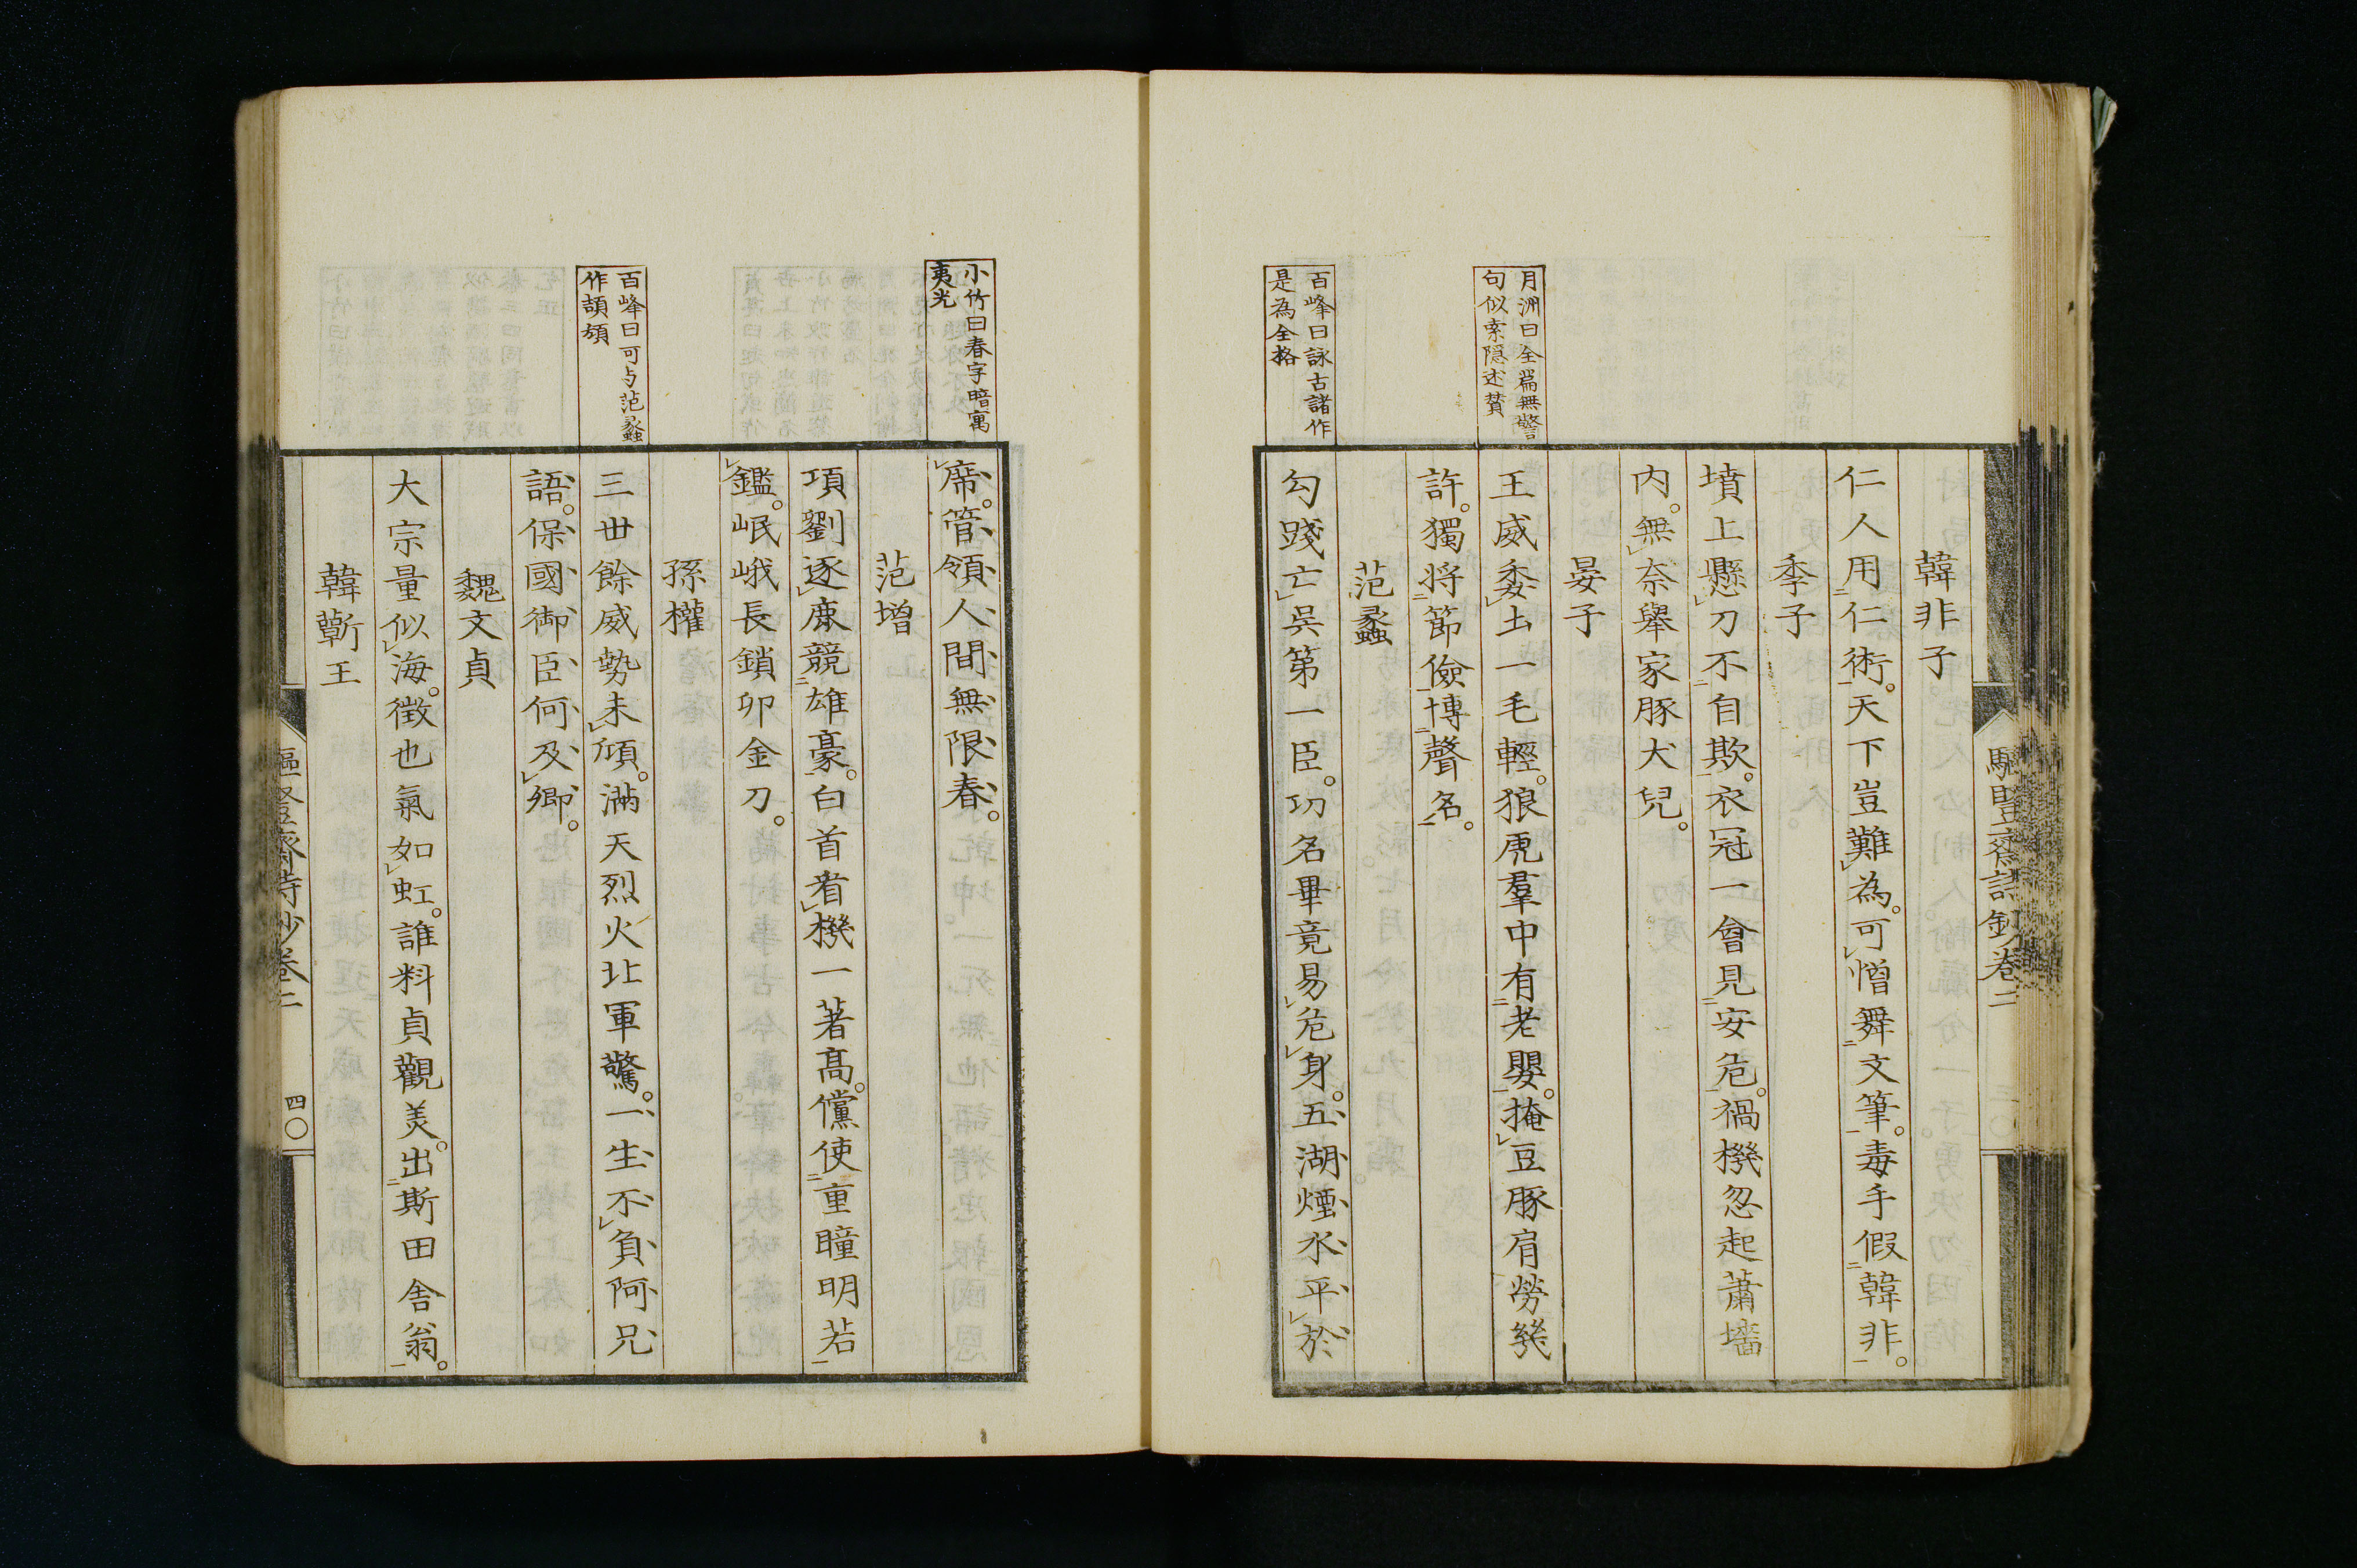 韓非子
仁人用仁術。天下豈難為。可憎舞文筆。毒手假韓非。
季子
墳上懸刀不自欺。衣冠一會見安危。禍機忽起蕭墻
内。無奈舉家豚犬兒。
晏子
月洲曰全篇無警
句似索隱述贊
王威委土一毛輕。狼虎羣中有老嬰。掩豆豚肩勞幾
許。獨将節儉博聲名。
范蠡
百峰曰詠古諸作
是為全格
勾踐亡吳第一臣。功名畢竟易危身。五湖煙水平於
小竹曰春字暗寓
夷光
席。管領人間無限春。
范增
項劉逐鹿競雄豪。白首看機一著高。儻使重瞳明若
鑑。岷峨長鎖卯金刀。
孫權
百峰曰可与范蠡
作頡頏
三世餘威勢未傾。滿天烈火北軍驚。一生不負阿兄
語。保國御臣何及卿。
魏文貞
大宗量似海。徵也氣如虹。誰料貞觀美。出斯田舎翁。
韓蘄王
齋詩鈔卷二
四〇